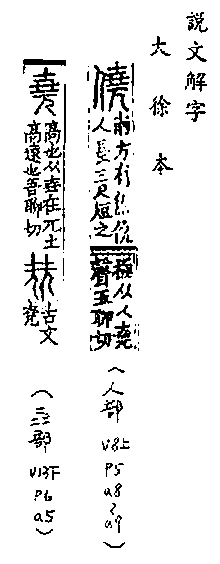 説文解字
大徐本
僥 南方有焦僥
人長三尺短之
極从人堯
聲五聊切
(人部 V8上 P5 a8~a9)
堯 高也从垚在兀上
高遠也吾聊切
古文
堯
(垚部 V13下 P6 a5)